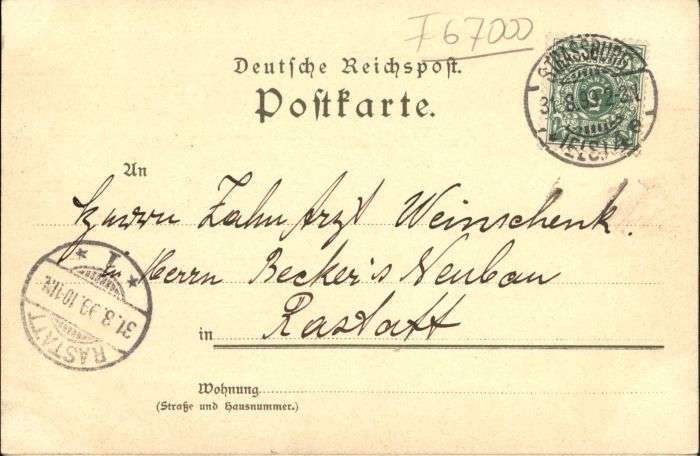 F 67000
Deutsche Reichspost.
Postkarte.
STRASSBURG
31.8.99
(ELS.)
An
Herrn Zahnarzt Weinschenk.
Herrn Becker's Neubau
in Rastatt
RASTATT
31.8.99.10-11N.
1
Wohnung
(Straße und Hausnummer.)